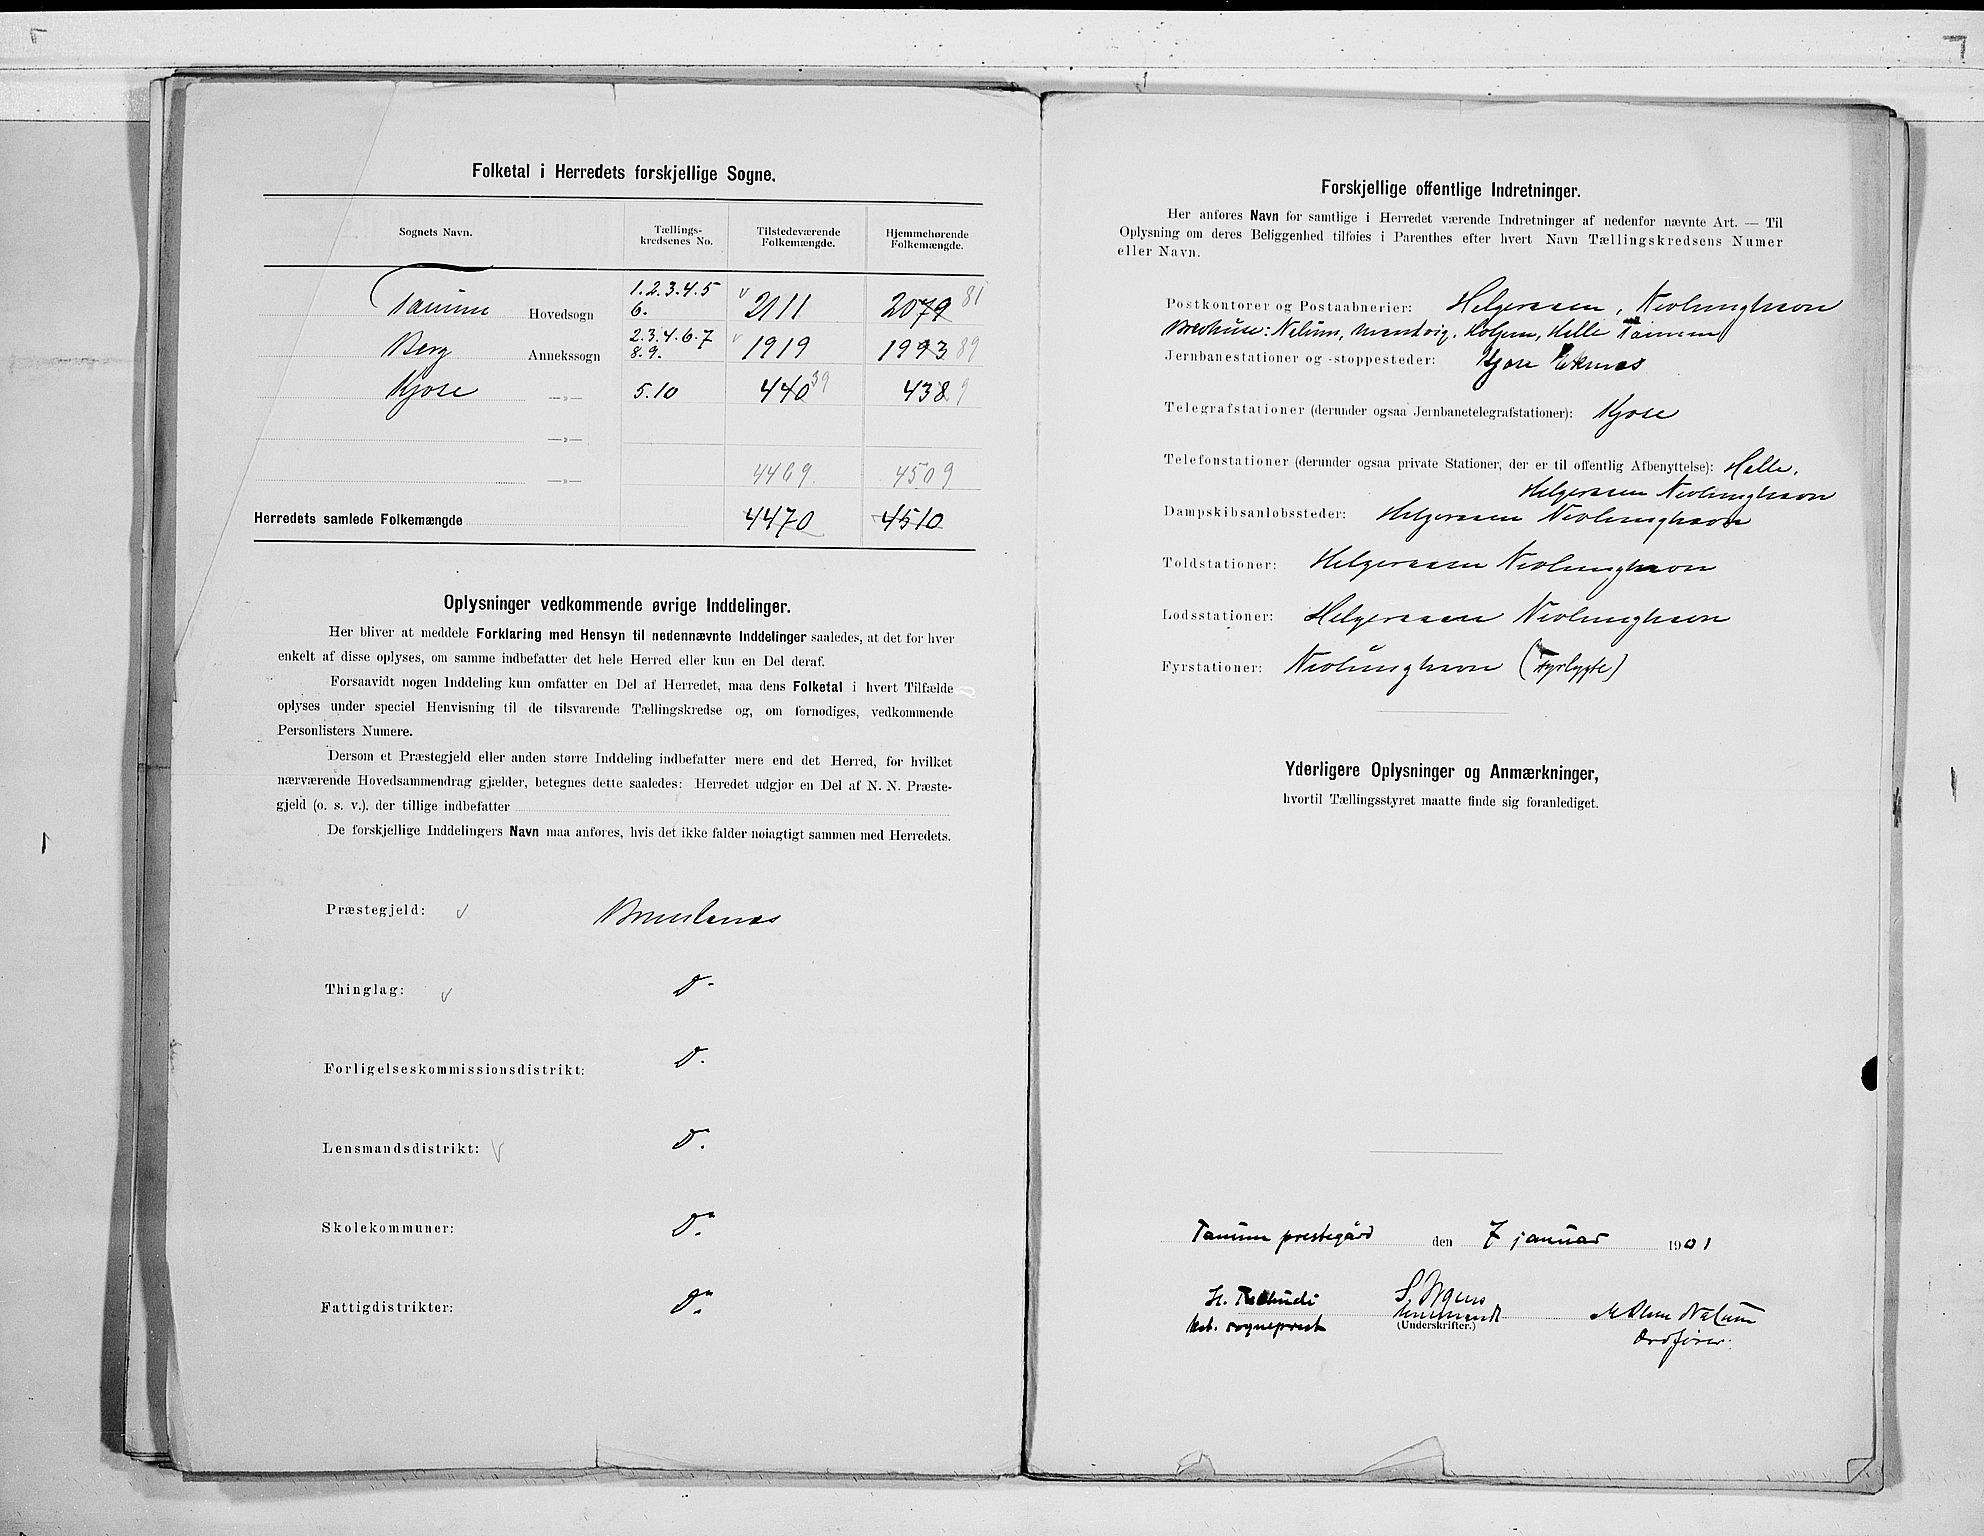 Folketal i Herredets forskjellige Sogne.
Sognets Navn. Tællings-kredsenes No. Tilstedeværende Folkemængde. Hjemmehørende Folkemængde.
Tanum Hovedsogn 1.2.3.4.5 6. 2111 2079 81
Berg Annekssogn 2.3.4.6.7 8.9. 1919 1993 89
Kjose —»— 5.10 440 39 438 9
—»—
—»— 4469. 4509
Herredets samlede Folkemængde 4470 4510
Oplysninger vedkommende øvrige Inddelinger.
Her bliver at meddele Forklaring med Hensyn til nedennævnte Inddelinger saaledes, at det for hver
enkelt af disse oplyses, om samme indbefatter det hele Herred eller kun en Del deraf.
Forsaavidt nogen Inddeling kun omfatter en Del af Herredet, maa dens Folketal i hvert Tilfælde
oplyses under speciel Henvisning til de tilsvarende Tællingskredse og, om fornødiges, vedkommende
Personlisters Numere.
Dersom et Præstegjeld eller anden større Inddeling indbefatter mere end det Herred, for hvilket
nærværende Hovedsammendrag gjælder, betegnes dette saaledes: Herredet udgjør en Del af N. N. Præste-
gjeld (o. s. v.), der tillige indbefatter
De forskjellige Inddelingers Navn maa anføres, hvis det ikke falder nøiagtigt sammen med Herredets.
Præstegjeld: Brunlanæs
Thinglag: D-
Forligelseskommissionsdistrikt: D.
Lensmandsdistrikt: D.
Skolekommuner: D.
Fattigdistrikter: D.
Forskjellige offentlige Indretninger.
Her anføres Navn for samtlige i Herredet værende Indretninger af nedenfor nævnte Art. — Til
Oplysning om deres Beliggenhed tilføies i Parenthes efter hvert Navn Tællingskredsens Numer
eller Navn.
Postkontorer og Postaabnerier: Helgeraaen, Nevlunghavn
Brevhuse: Nalum, Manvig, Holjem, Halle Tanum
Jernbanestationer og -stoppesteder: Kjose Eknæs
Telegrafstationer (derunder ogsaa Jernbanetelegrafstationer): Kjose
Telefonstationer (derunder ogsaa private Stationer, der er til offentlig Afbenyttelse): Halle,
Helgeraaen Nevlunghavn
Dampskibsanløbssteder: Helgeraaen Nevlunghavn
Toldstationer: Helgeraaen Nevlunghavn
Lodsstationer: Helgeraaen Nevlunghavn
Fyrstationer: Nevlunghavn (Fyrlygte)
Yderligere Oplysninger og Anmærkninger,
hvortil Tællingsstyret maatte finde sig foranlediget.
Tanum prestegård den 7 januar 1901
H. Tschudi
kst. sogneprest
(Underskrifter.)
Nalum
Ordfører.